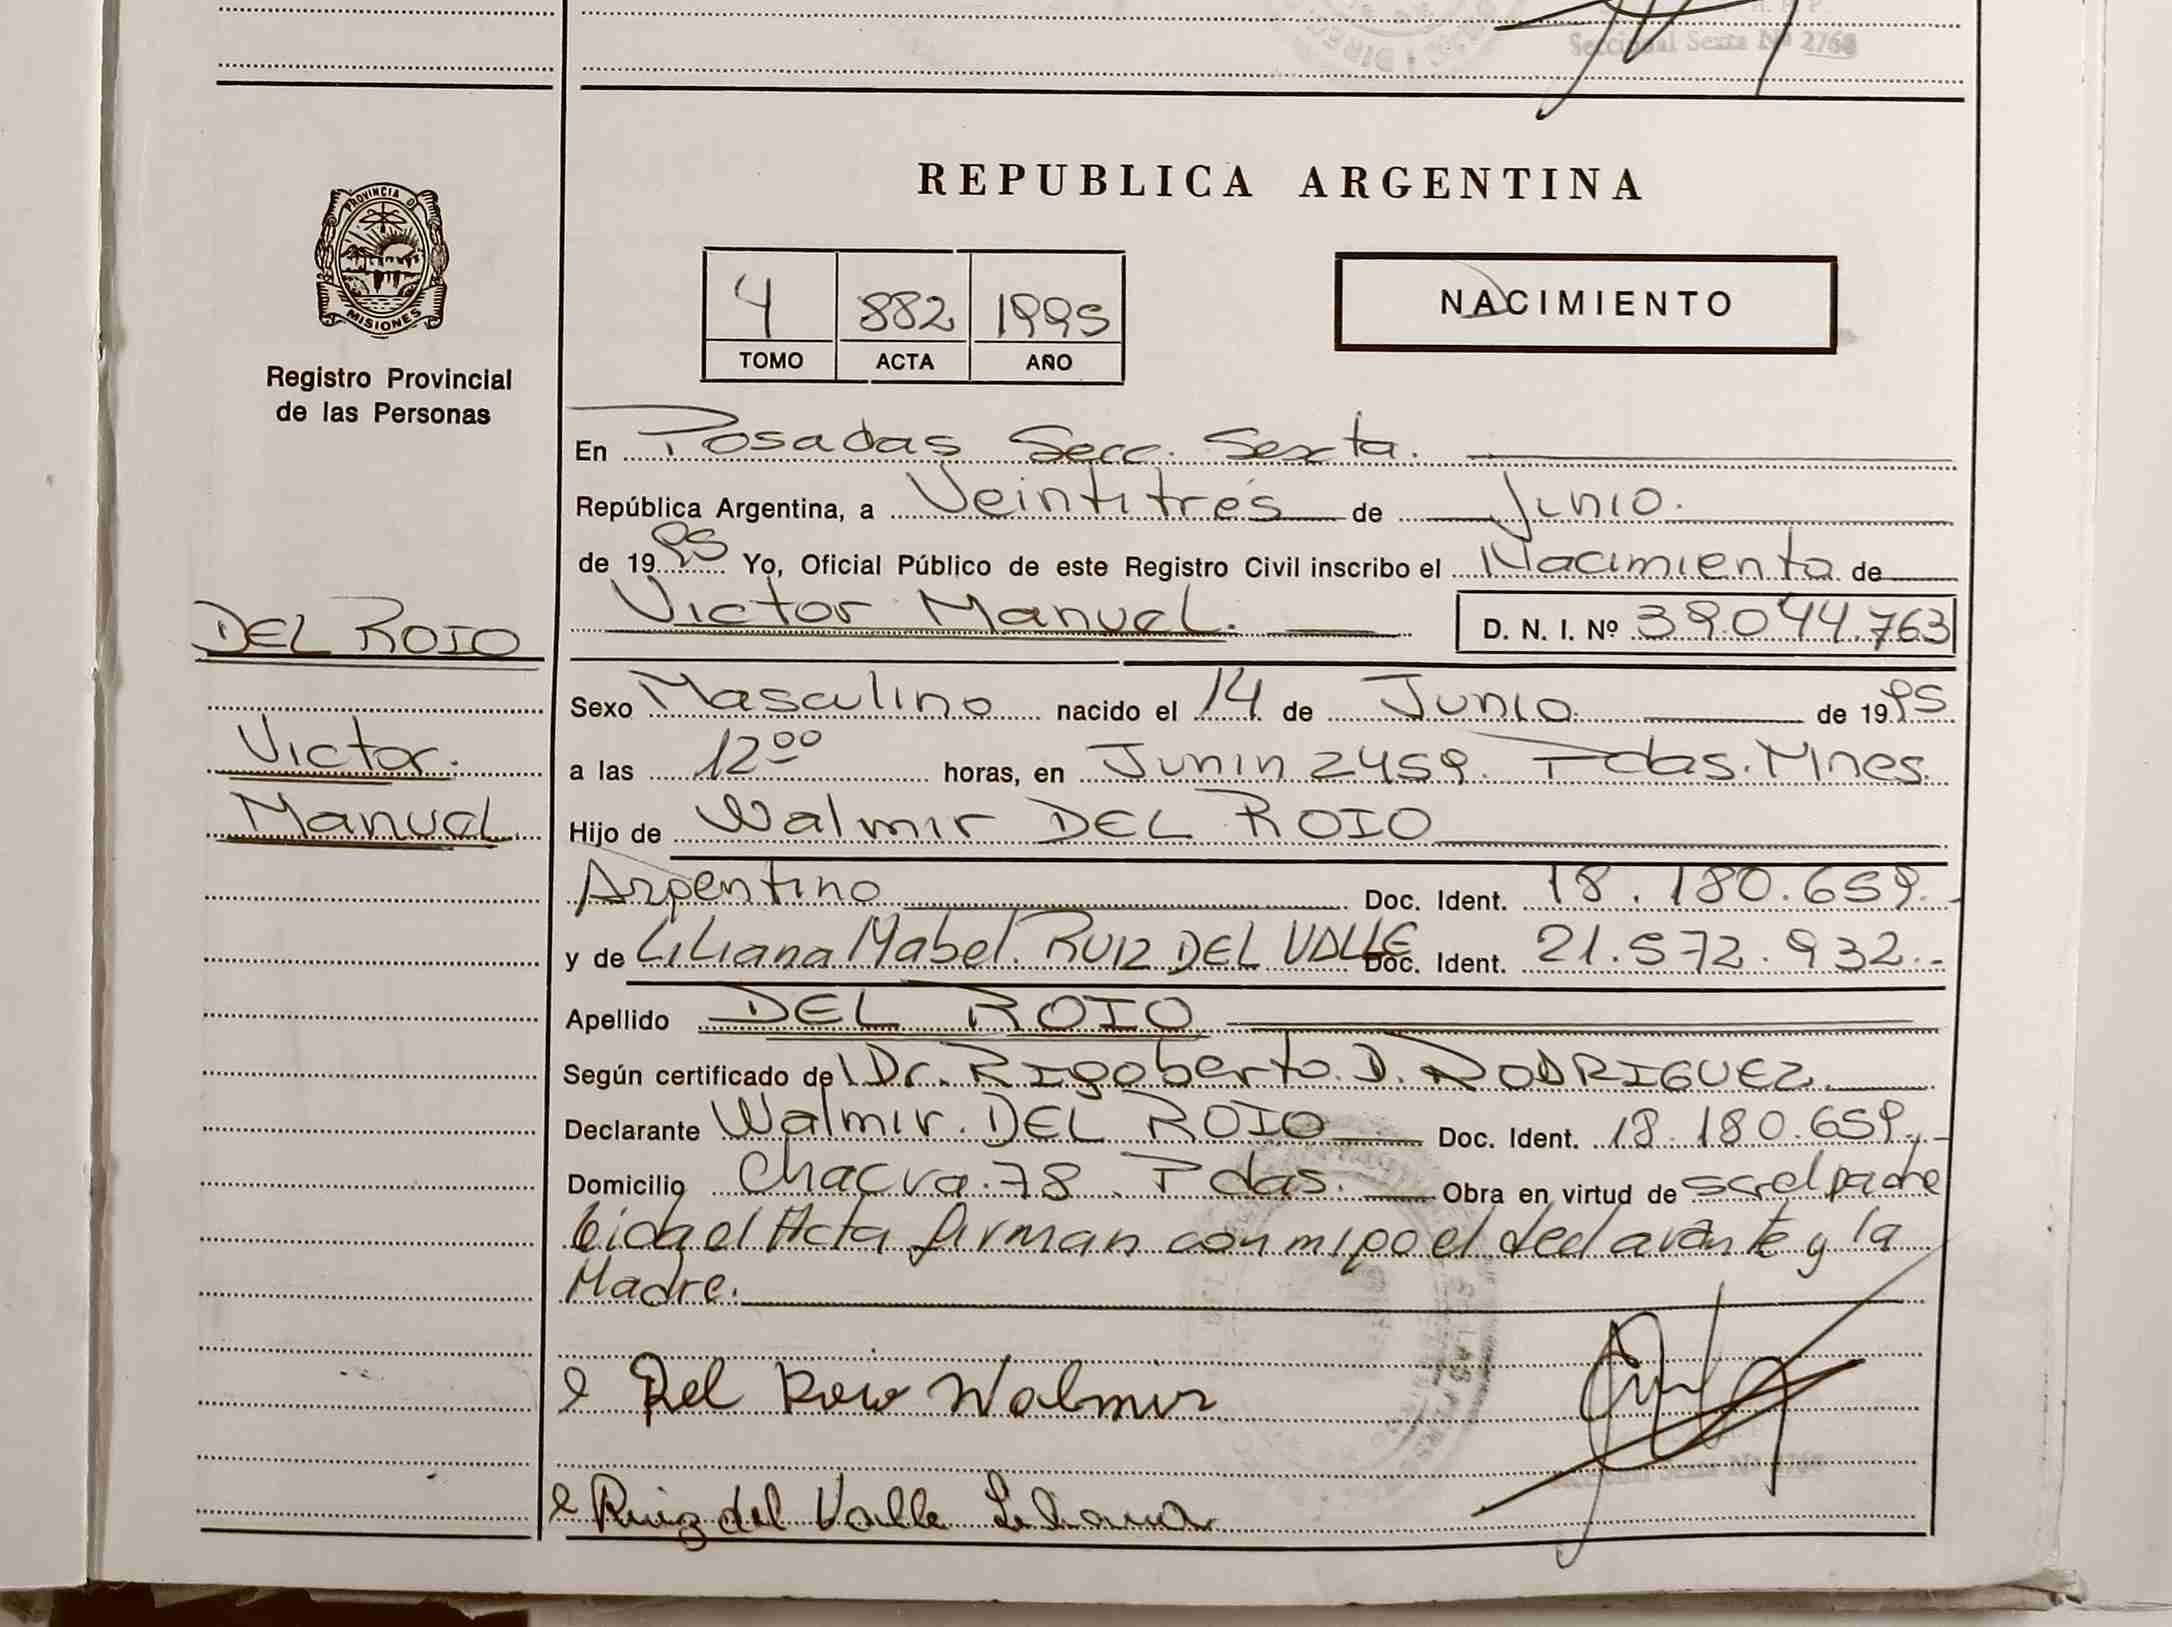 Seccional Sexta Nº 2768
REPUBLICA ARGENTINA
PROVINCIA D
MISIONES
Registro Provincial
de las Personas
4 882 1995
TOMO ACTA AÑO
NACIMIENTO
En Posadas Secc. Sexta.
República Argentina, a Veintitrés de Junio.
de 1995 Yo, Oficial Público de este Registro Civil inscribo el Nacimiento de
Victor Manuel. D. N. I. Nº 39.044.763
DEL ROIO
Victor.
Manuel.
Sexo Masculino nacido el 14 de Junio de 1995
a las 12 00 horas, en Junin 2459. Pdas. Mnes.
Hijo de Walmir DEL ROIO
Argentino Doc. Ident. 18.180.659.-
y de Liliana Mabel. RUIZ DEL VALLE Doc. Ident. 21.572.932.-
Apellido DEL ROIO
Según certificado del Dr. Rigoberto. D. RODRIGUEZ
Declarante Walmir. DEL ROIO Doc. Ident. 18.180.659.-
Domicilio Chacra. 78. Pdas. Obra en virtud de ser el padre
leida el Acta firman conmigo el declarante y la
Madre.
Del Roio Walmir
Ruiz del Valle Liliana